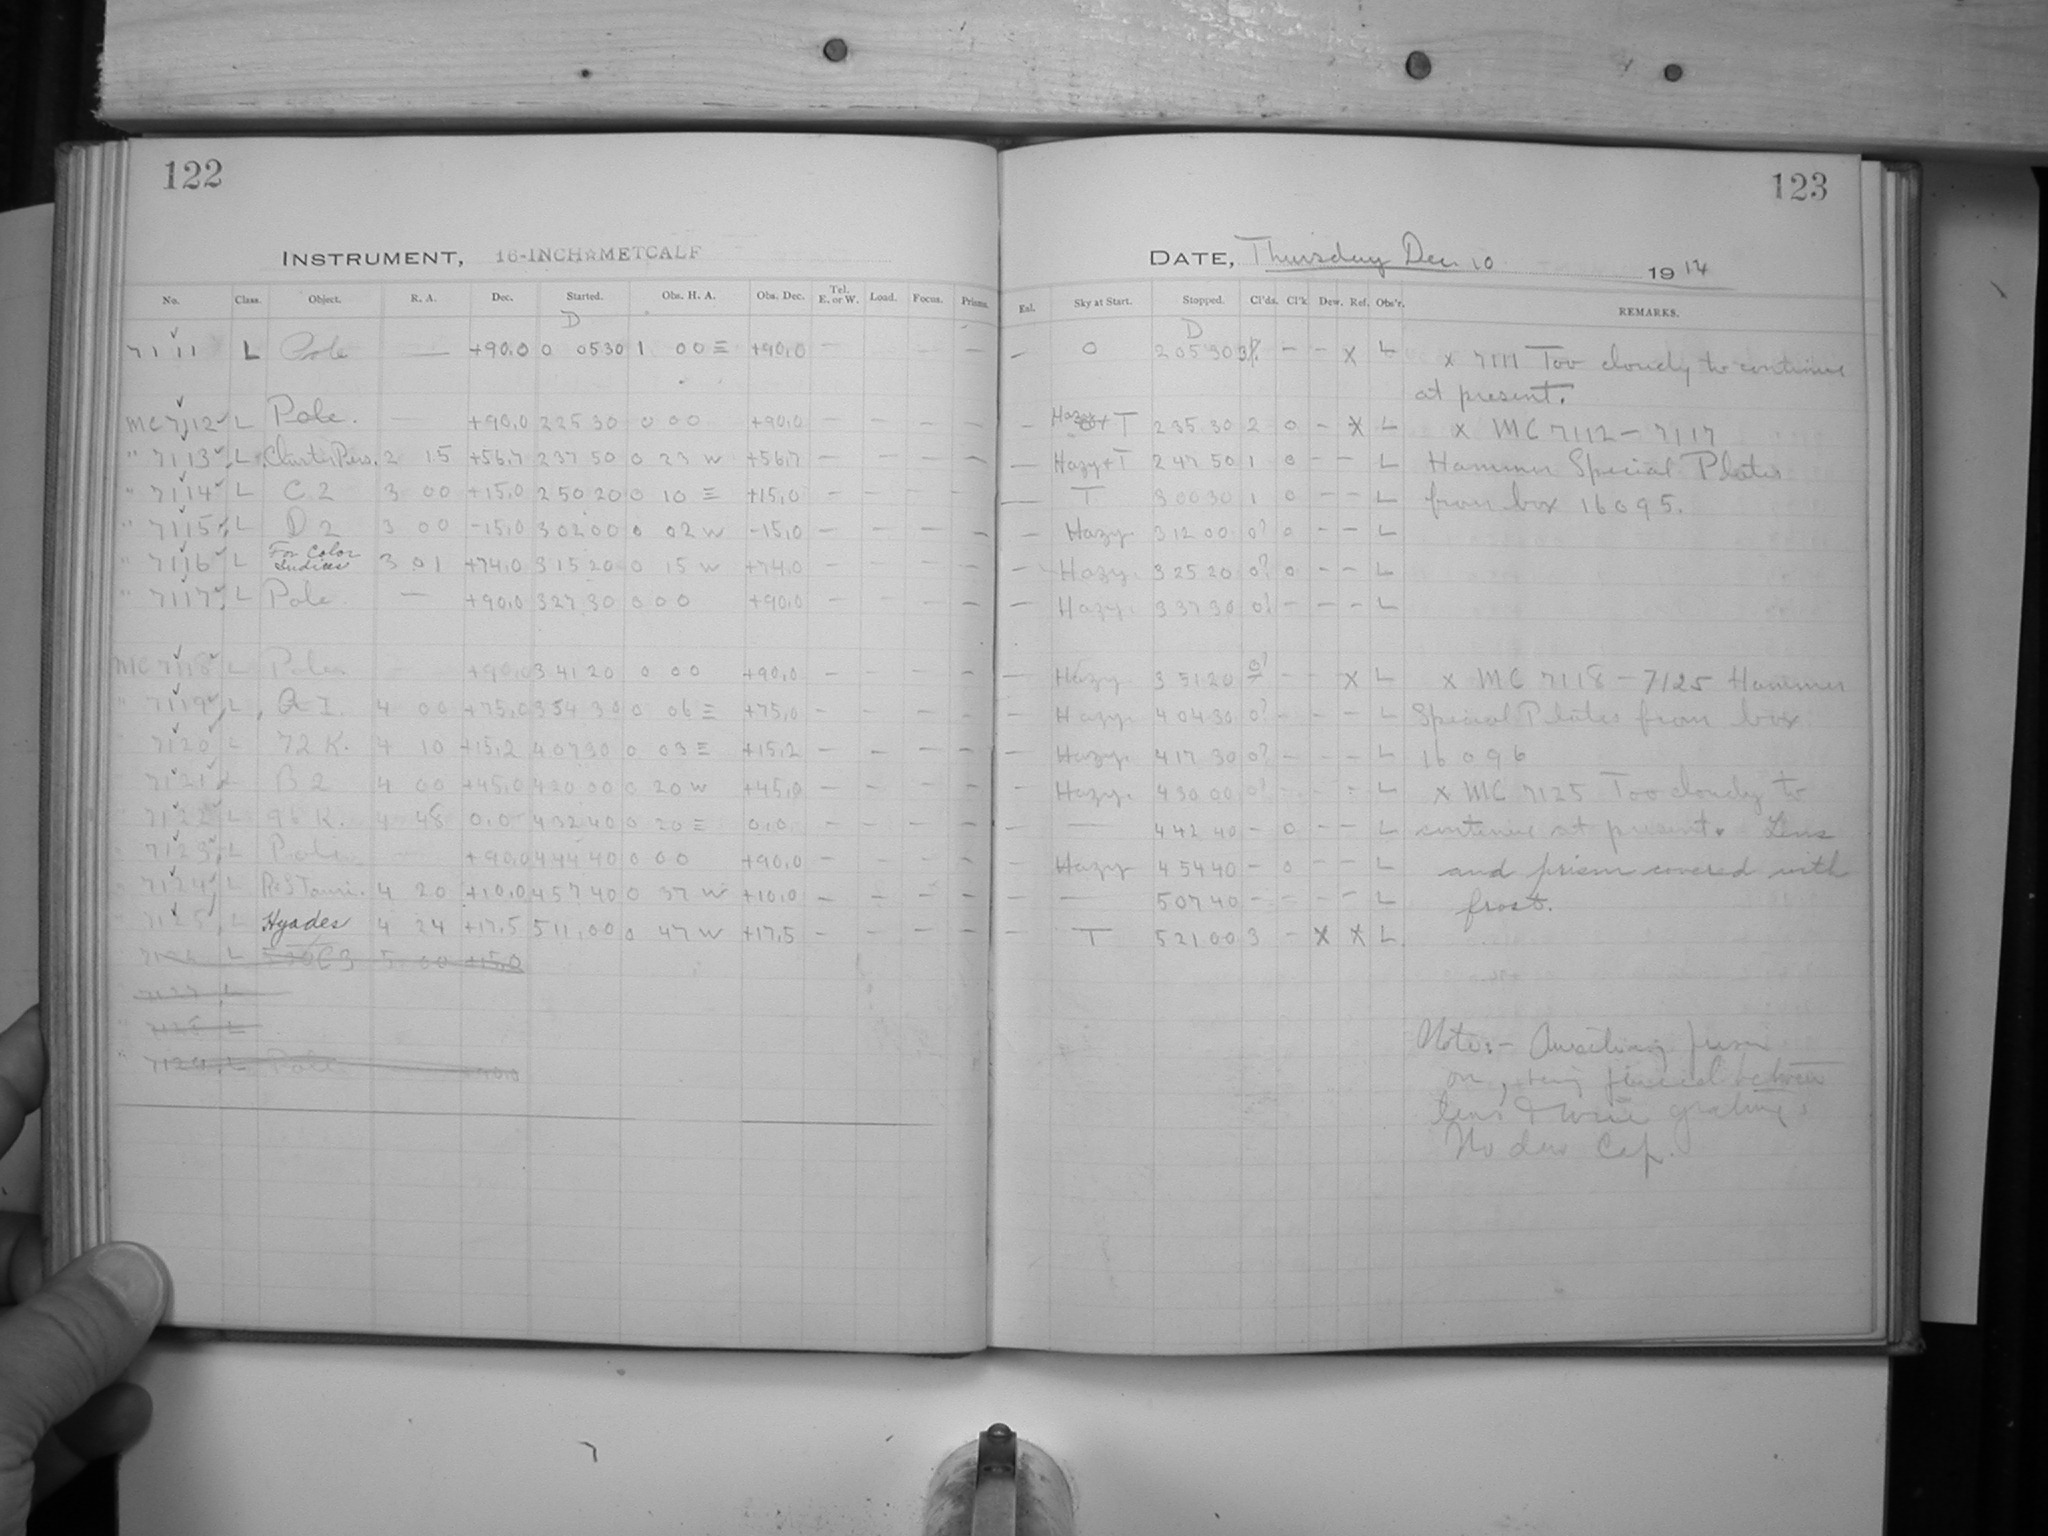 122
INSTRUMENT, 16-INCH METCALF
No. Class. Object. R. A. Dec. Started. Obs. H. A. Obs. Dec. Tel. E. or W. Load. Focus. Prisms.
D
7111 L Pole — +90.0 0 05 30 1 00 E +90.0 — — — —
MC 7112 L Pole. — +90.0 2 25 30 0 00 +90.0 — — —
" 7113 L Clust. Pers. 2 15 +56.7 2 37 50 0 23 W +56.7 — — — —
" 7114 L C 2 3 00 +15.0 2 50 20 0 10 E +15.0 — — — —
" 7115 L D 2 3 00 -15.0 3 02 00 0 02 W -15.0 — — — —
" 7116 L For Color Indices 3 01 +74.0 3 15 20 0 15 W +74.0 — — — —
" 7117 L Pole — +90.0 3 27 30 0 00 +90.0 — — — —
MC 7118 L Pole — +90.0 3 41 20 0 00 +90.0 — — — —
" 7119 L A 1. 4 00 +75.0 3 54 30 0 06 E +75.0 — — — —
" 7120 L 72 K. 4 10 +15.2 4 07 30 0 03 E +15.2 — — — —
" 7121 L B 2 4 00 +45.0 4 20 00 0 20 W +45.0 — — — —
" 7122 L 96 K. 4 48 0.0 4 32 40 0 20 E 0.0 — — — —
" 7123 L Pole +90.0 4 44 40 0 00 +90.0 — — — —
" 7124 L R & S Tauri. 4 20 +10.0 4 57 40 0 37 W +10.0 — — — —
" 7125 L Hyades 4 24 +17.5 5 11 00 0 47 W +17.5 — — — —
7126 L C3 5 00 +15.0
7127 L
" 7128 L
" 7129 L Pole +90.0
123
DATE, Thursday Dec. 10 1914
Enl. Sky at Start. Stopped. Cl'ds. Cl'k Dew. Ref. Obs'r. REMARKS.
D
— 0 2 05 30 3 — — x L x 7111 Too cloudy to continue
at present.
— Hazy + T 2 35 30 2 0 — x L x MC 7112 – 7117
— Hazy + T 2 47 50 1 0 — — L Hammer Special Plates
— T 3 00 30 1 0 — — L from box 16095.
Hazy. 3 12 00 0? 0 — — L
— Hazy. 3 25 20 0? 0 — — L
— Hazy. 3 37 30 0? — — — L
— Hazy 3 51 20 0? — — x L x MC 7118 – 7125 Hammer
— Hazy. 4 04 30 0? — — — L Special Plates from box
— Hazy. 4 17 30 0? — — — L 16096
— Hazy. 4 30 00 0? — — — L x MC 7125 Too cloudy to
— — 4 42 40 — 0 — — L continue at present. Lens
— Hazy 4 54 40 — 0 — — L and prism covered with
— — 5 07 40 — — — — L frost.
— T 5 21 00 3 — x x L.
Note:- Auxiliary prism
on, being placed between
lens & wire grating.
No dew Cap.